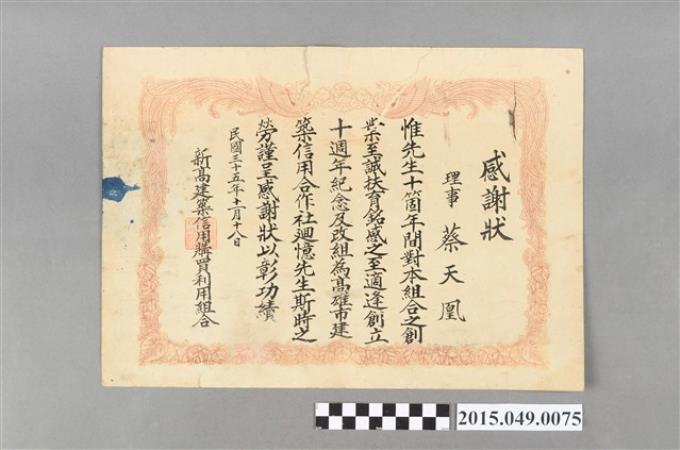 感謝狀
理事 蔡天凰
惟先生十箇年間對本組合之創
業至誠扶育銘感之至適逢創立
十週年紀念及改組為高雄市建
築信用合作社廻憶先生斯時之
勞謹呈感謝狀以彰功績
民國三十五年十一月十八日
新高建築信用購買利用組合
2015.049.0075